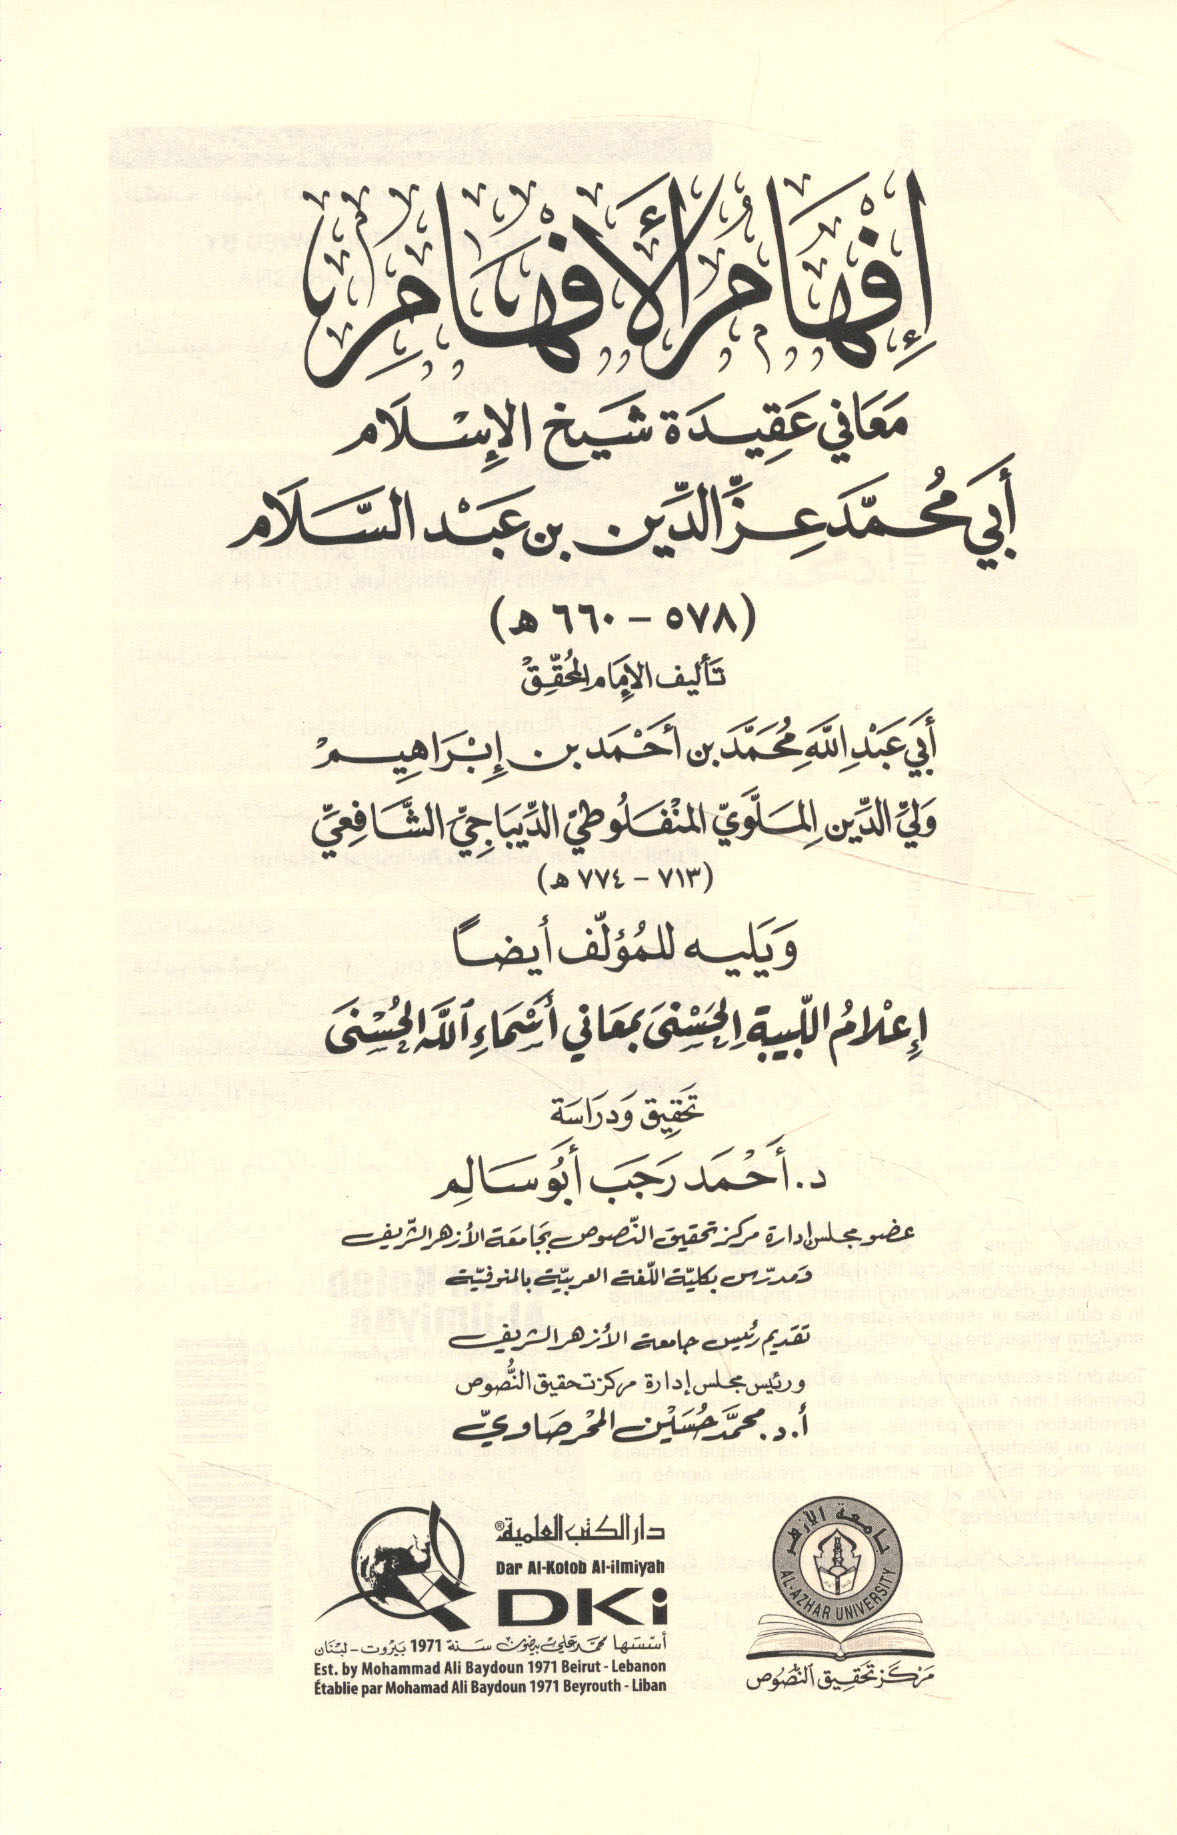 إِفْهَامُ الأَفْهَامِ
مَعَاني عَقِيدَة شَيخ الإِسْلَام
أَبي مُحمَّد عِزِّ الدِّين بن عَبْد السَّلَام
(٥٧٨ - ٦٦٠ هـ)
تَأليف الإِمَام المُحَقِّقْ
أَبي عَبْدِ اللَّهِ مُحَمَّد بن أَحْمَد بن إِبْرَاهِيمْ
وَليِّ الدِّين المَلَّوَيّ المنْفَلُوطيّ الدِّيبَاجيّ الشَّافِعيّ
(٧١٣ - ٧٧٤ هـ)
وَيَليه للمُؤلّف أيضاً
إِعْلَامُ اللَّبيبَةِ الحَسْنَى بمَعَاني أَسْمَاءِ اللَّه الحُسْنَى
تَحقِيق وَدرَاسَة
د. أَحْمَد رَجَب أَبُو سَالِم
عضو مجلس إدارة مركز تحقيق النّصوص بجَامعَة الأزهر الشّريف
ومدرّس بكليّة اللّغة العربيّة بالمنوفيّة
تقديم رئيس جامعة الأزهر الشريف
ورئيس مجلس إدارة مركز تحقيق النُّصُوص
أ.د. محمَّد حُسَيْن المحْرصَاويّ
دار الكتب العلمية®
Dar Al-Kotob Al-ilmiyah
DKi
أسّسَها محمّد علي بيضون سَنة 1971 بَيْروت - لبْنَان
Est. by Mohammad Ali Baydoun 1971 Beirut - Lebanon
Établie par Mohamad Ali Baydoun 1971 Beyrouth - Liban
جامعة الأزهر
AL-AZHAR UNIVERSITY
مَركز تَحقِيق النّصُوص